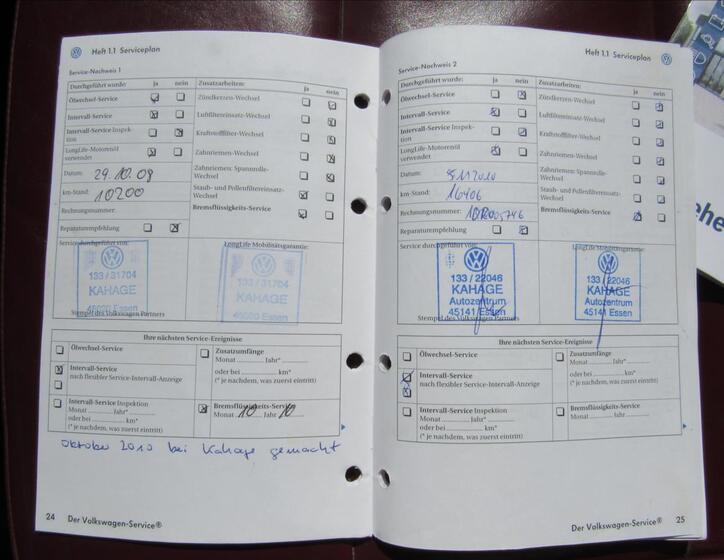 Heft 1.1 Serviceplan
Service-Nachweis 1
Durchgeführt wurde: ja nein
Zusatzarbeiten: ja nein
Ölwechsel-Service
Zündkerzen-Wechsel
Intervall-Service
Luftfiltereinsatz-Wechsel
Intervall-Service Inspek-
tion
Kraftstofffilter-Wechsel
LongLife-Motorenöl
verwendet
Zahnriemen-Wechsel
Datum: 29.10.09
Zahnriemen: Spannrolle-
Wechsel
km-Stand: 10200
Staub- und Pollenfiltereinsatz-
Wechsel
Rechnungsnummer:
Bremsflüssigkeits-Service
Reparaturempfehlung
Service durchgeführt von:
LongLife Mobilitätsgarantie:
133 / 31704
KAHAGE
Essen
133 / 31704
KAHAGE
Essen
Stempel des Volkswagen Partners
Ihre nächsten Service-Ereignisse
Ölwechsel-Service
Zusatzumfänge
Monat Jahr*
Intervall-Service
nach flexibler Service-Intervall-Anzeige
oder bei km*
(* je nachdem, was zuerst eintritt)
Intervall-Service Inspektion
Monat Jahr*
oder bei km*
(* je nachdem, was zuerst eintritt)
Bremsflüssigkeits-Service
Monat 10 Jahr 10
Oktober 2010 bei Kahage gemacht
24 Der Volkswagen-Service®
Heft 1.1 Serviceplan
Service-Nachweis 2
Durchgeführt wurde: ja nein
Zusatzarbeiten: ja nein
Ölwechsel-Service
Zündkerzen-Wechsel
Intervall-Service
Luftfiltereinsatz-Wechsel
Intervall-Service Inspek-
tion
Kraftstofffilter-Wechsel
LongLife-Motorenöl
verwendet
Zahnriemen-Wechsel
Datum:
Zahnriemen: Spannrolle-
Wechsel
km-Stand: 16406
Staub- und Pollenfiltereinsatz-
Wechsel
Rechnungsnummer:
Bremsflüssigkeits-Service
Reparaturempfehlung
Service durchgeführt von:
LongLife Mobilitätsgarantie:
133 / 22046
KAHAGE
Autozentrum
45141 Essen
133 / 22046
KAHAGE
Autozentrum
45141 Essen
Stempel des Volkswagen Partners
Ihre nächsten Service-Ereignisse
Ölwechsel-Service
Zusatzumfänge
Monat Jahr*
Intervall-Service
nach flexibler Service-Intervall-Anzeige
oder bei km*
(* je nachdem, was zuerst eintritt)
Intervall-Service Inspektion
Monat Jahr*
oder bei km*
(* je nachdem, was zuerst eintritt)
Bremsflüssigkeits-Service
Monat Jahr
Der Volkswagen-Service® 25